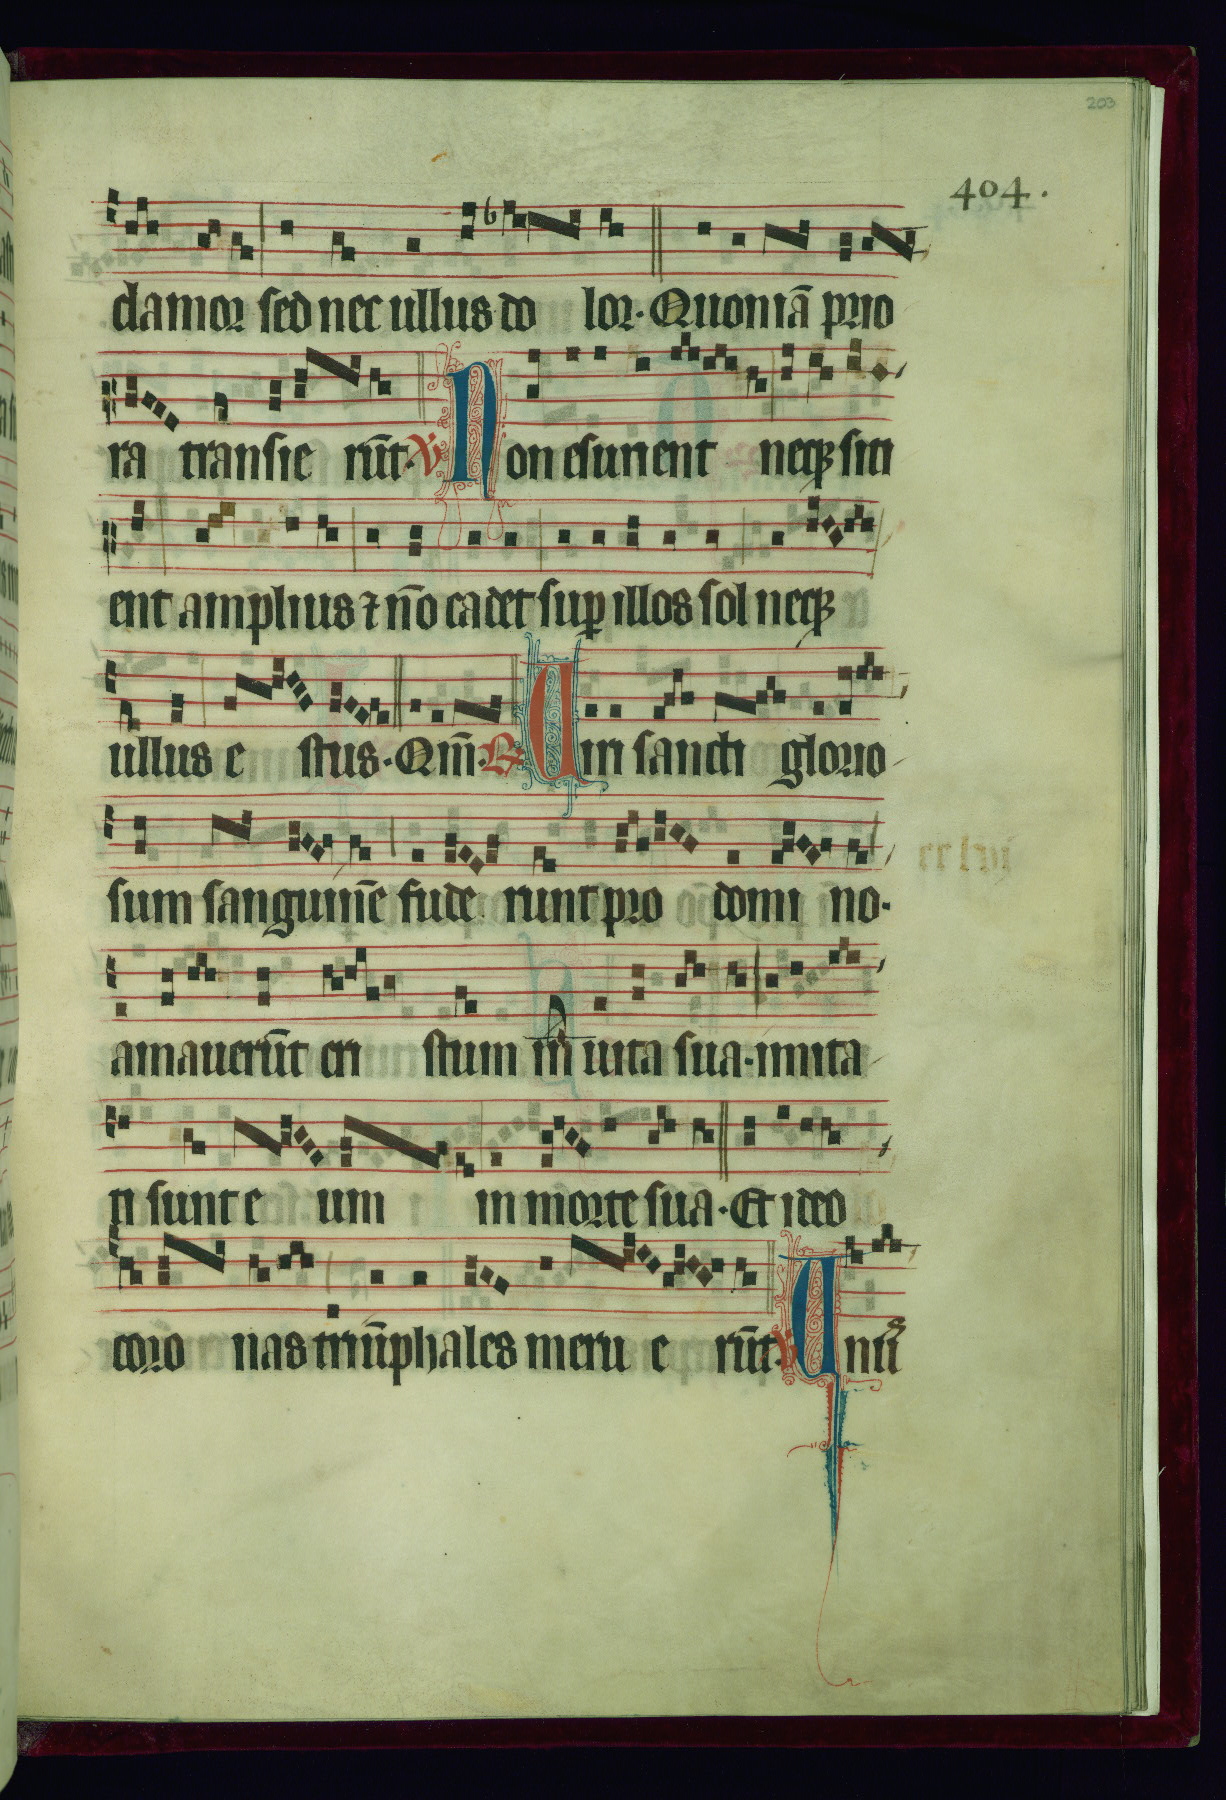 203
404.
clamor sed nec ullus do lor. Quoniā prio
ra transie rūt. V Non esurient neqꝫ siti
ent amplius ⁊ nō cadet suꝑ illos sol neqꝫ
ullus e stus. Qm̄. R Uiri sancti glorio
sum sanguinē fude runt pro domi no.
cc lvi
amauerūt cri stum in uita sua. imita
ti sunt e um in morte sua. Et ideo
coro nas triūphales meru e rūt. V Unus